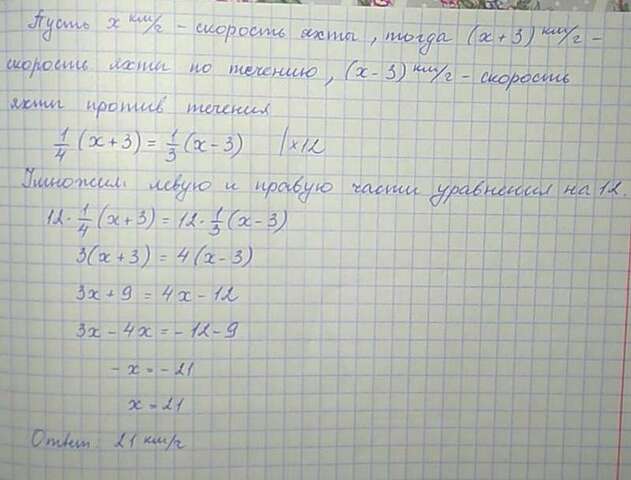 Пусть x км/г - скорость яхты, тогда (x+3) км/г -
скорость яхты по течению, (x-3) км/г - скорость
яхты против течения
1/4 (x+3) = 1/3 (x-3) |×12
Умножил левую и правую части уравнения на 12.
12·1/4 (x+3) = 12·1/3 (x-3)
3(x+3) = 4(x-3)
3x+9 = 4x-12
3x-4x = -12-9
-x = -21
x = 21
Ответ: 21 км/г